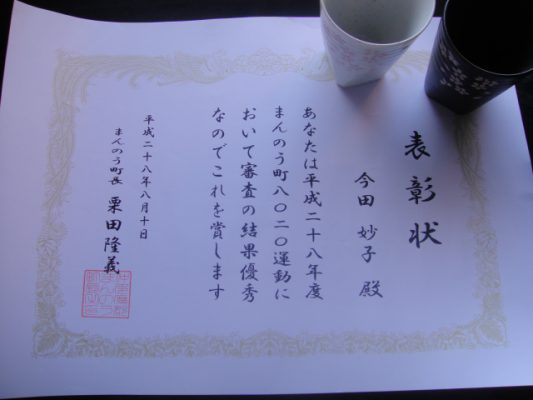 表彰状
今田 妙子 殿
あなたは平成二十八年度
まんのう町八〇二〇運動に
おいて審査の結果優秀
なのでこれを賞します
平成二十八年八月十日
まんのう町長 栗田隆義